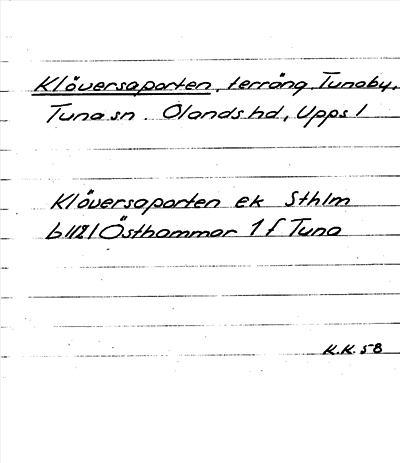 Klöversaporten, terräng, Tunaby,
Tuna sn. Olands hd, Upps l
Klöversaporten ek Sthlm
bl121 Östhammar 1 f Tuna
K.K. 58